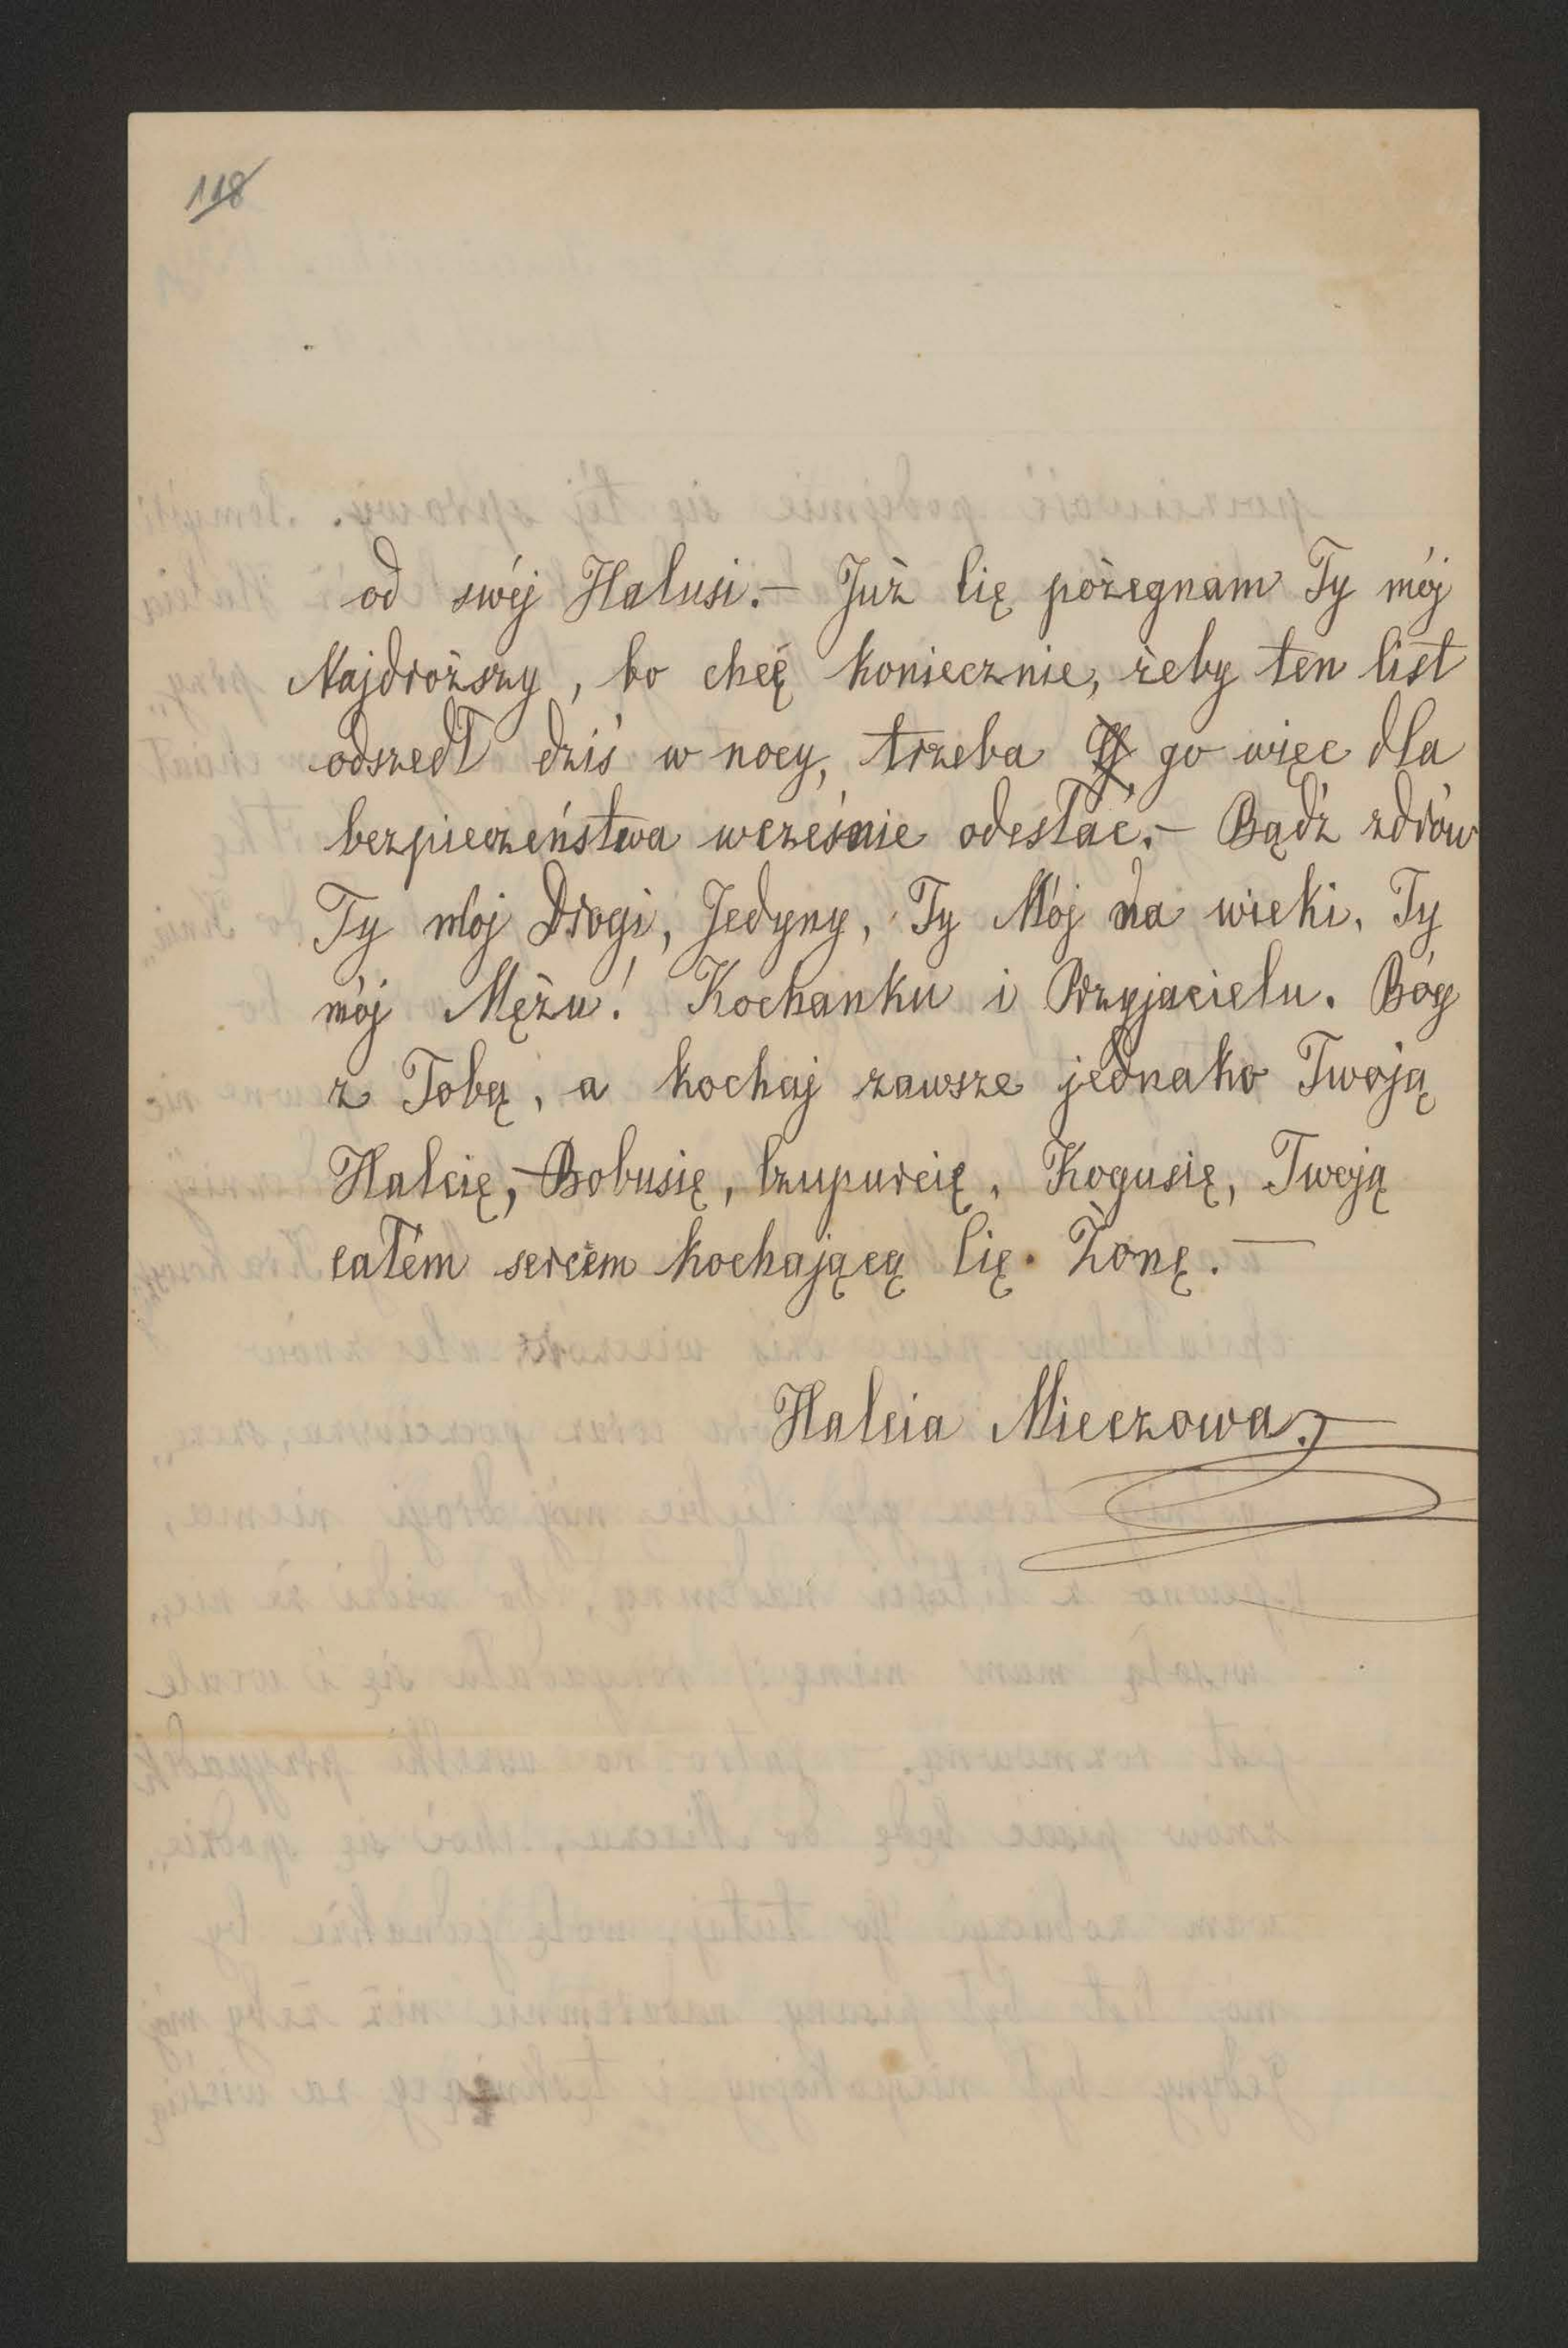 118
od swéj Halusi. — Już Cię pożegnam Ty mój
Najdroższy, bo chcę koniecznie, żeby ten list
odszedł dziś w nocy, trzeba go więc dla
bezpieczeństwa wcześnie odesłać. — Bądź zdrów
Ty mój Drogi, Jedyny, Ty Mój na wieki, Ty
mój Mężu! Kochanku i Przyjacielu. Bóg
z Tobą, a kochaj zawsze jednako Twoją
Halcię, Bobusię, Czupurcię, Kogusię, Twoją
całém sercem kochającą Cię Żonę. —
Halcia Mieczowa.